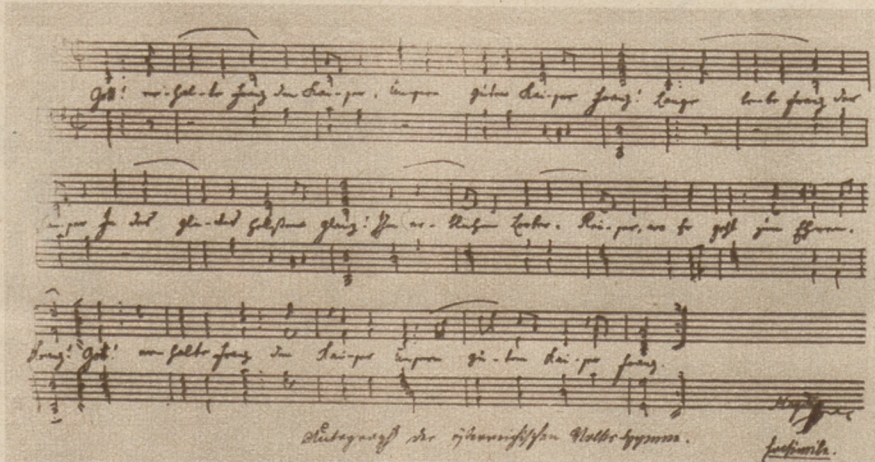 Gott! er-hal-te Franz den Kai-ser, unsern guten Kai-ser Franz! Lange lebe Franz der
Kai-ser In des Glü-ckes hellstem Glanz! Ihm er-blühen Lorber-Rei-ser, wo Er geht zum Ehren-
kranz! Gott! er-halte Franz den Kai-ser unsern gu-ten Kai-ser Franz.
Autograph der österreichischen Volkshymne.
Haydn
facsimile.